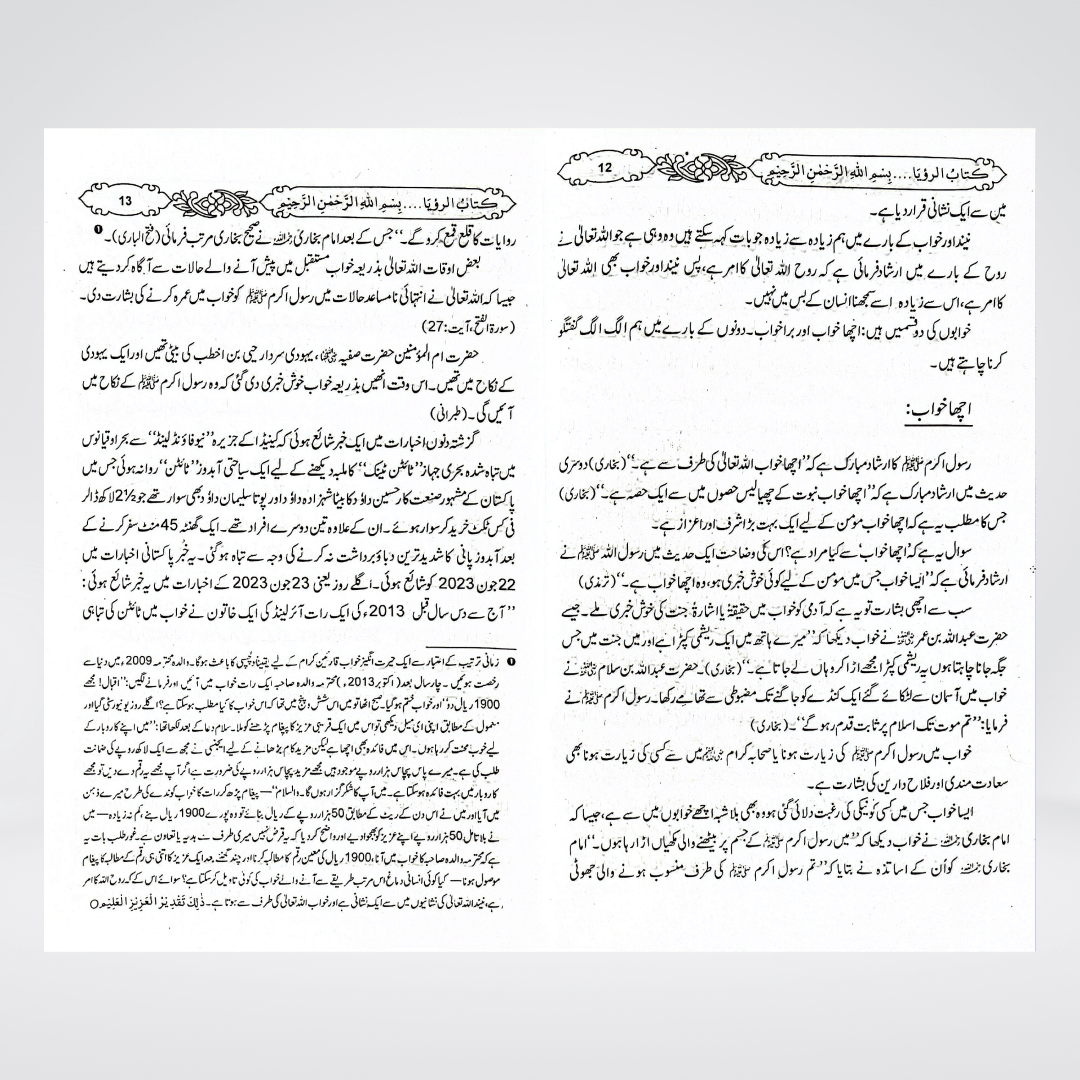 كتابُ الرؤيا.... بِسْمِ اللهِ الرَّحْمٰنِ الرَّحِيْمِ 12
میں سے ایک نشانی قرار دیا ہے۔
نیند اور خواب کے بارے میں ہم زیادہ سے زیادہ جو بات کہہ سکتے ہیں وہ وہی ہے جو اللہ تعالیٰ نے
روح کے بارے میں ارشاد فرمائی ہے کہ روح اللہ تعالیٰ کا امر ہے، پس نیند اور خواب بھی اللہ تعالیٰ
کا امر ہے، اس سے زیادہ اسے سمجھنا انسان کے بس میں نہیں۔
خوابوں کی دو قسمیں ہیں: اچھا خواب اور برا خواب۔ دونوں کے بارے میں ہم الگ الگ گفتگو
کرنا چاہتے ہیں۔
اچھا خواب:
رسول اکرم ﷺ کا ارشاد مبارک ہے کہ ”اچھا خواب اللہ تعالیٰ کی طرف سے ہے۔“ (بخاری) دوسری
حدیث میں ارشاد مبارک ہے کہ ”اچھا خواب نبوت کے چھیالیس حصوں میں سے ایک حصہ ہے۔“ (بخاری)
جس کا مطلب یہ ہے کہ اچھا خواب مؤمن کے لیے ایک بہت بڑا شرف اور اعزاز ہے۔
سوال یہ ہے کہ ’اچھا خواب‘ سے کیا مراد ہے؟ اس کی وضاحت ایک حدیث میں رسول اللہ ﷺ نے
ارشاد فرمائی ہے کہ ”ایسا خواب جس میں مؤمن کے لیے کوئی خوش خبری ہو، وہ اچھا خواب ہے۔“ (ترمذی)
سب سے اچھی بشارت تو یہ ہے کہ آدمی کو خواب میں حقیقۃً یا اشارۃً جنت کی خوش خبری ملے۔ جیسے
حضرت عبداللہ بن عمر ﷠ نے خواب دیکھا کہ ”میرے ہاتھ میں ایک ریشمی کپڑا ہے اور میں جنت میں جس
جگہ جانا چاہتا ہوں یہ ریشمی کپڑا مجھے اڑا کر وہاں لے جاتا ہے۔“ (بخاری)۔ حضرت عبداللہ بن سلام ﷜ نے
خواب میں آسمان سے لٹکائے گئے ایک کنڈے کو جاگنے تک مضبوطی سے تھامے رکھا۔ رسول اکرم ﷺ نے
فرمایا: ”تم موت تک اسلام پر ثابت قدم رہو گے“۔ (بخاری)
خواب میں رسول اکرم ﷺ کی زیارت ہونا یا صحابہ کرام ﷡ میں سے کسی کی زیارت ہونا بھی
سعادت مندی اور فلاح دارین کی بشارت ہے۔
ایسا خواب جس میں کسی کو نیکی کی رغبت دلائی گئی ہو وہ بھی بلاشبہ اچھے خوابوں میں سے ہے، جیسا کہ
امام بخاری ﷫ نے خواب دیکھا کہ ”میں رسول اکرم ﷺ کے جسم پر بیٹھنے والی مکھیاں اڑا رہا ہوں۔“ امام
بخاری ﷫ کو اُن کے اساتذہ نے بتایا کہ ”تم رسول اکرم ﷺ کی طرف منسوب ہونے والی جھوٹی
كتابُ الرؤيا.... بِسْمِ اللهِ الرَّحْمٰنِ الرَّحِيْمِ 13
روایات کا قلع قمع کرو گے۔“ جس کے بعد امام بخاری ﷫ نے صحیح بخاری مرتب فرمائی (فتح الباری)۔ ❶
بعض اوقات اللہ تعالیٰ بذریعہ خواب مستقبل میں پیش آنے والے حالات سے آگاہ کر دیتے ہیں
جیسا کہ اللہ تعالیٰ نے انتہائی نامساعد حالات میں رسول اکرم ﷺ کو خواب میں عمرہ کرنے کی بشارت دی۔
(سورۃ الفتح، آیت:27)
حضرت ام المؤمنین حضرت صفیہ ﷞، یہودی سردار حیی بن اخطب کی بیٹی تھیں اور ایک یہودی
کے نکاح میں تھیں۔ اس وقت انھیں بذریعہ خواب خوش خبری دی گئی کہ وہ رسول اکرم ﷺ کے نکاح میں
آئیں گی۔ (طبرانی)
گزشتہ دنوں اخبارات میں ایک خبر شائع ہوئی کہ کینیڈا کے جزیرہ ”نیو فاؤنڈ لینڈ“ سے بحر اوقیانوس
میں تباہ شدہ بحری جہاز ”ٹائٹن ٹینک“ کا ملبہ دیکھنے کے لیے ایک سیاحتی آبدوز ”ٹائٹن“ روانہ ہوئی جس میں
پاکستان کے مشہور صنعت کار حسین داؤد کا بیٹا شہزادہ داؤد اور پوتا سلیمان داؤد بھی سوار تھے جو 2½ لاکھ ڈالر
فی کس ٹکٹ خرید کر سوار ہوئے۔ ان کے علاوہ تین دوسرے افراد تھے۔ ایک گھنٹہ 45 منٹ سفر کرنے کے
بعد آبدوز پانی کا شدید ترین دباؤ برداشت نہ کرنے کی وجہ سے تباہ ہو گئی۔ یہ خبر پاکستانی اخبارات میں
22 جون 2023 کو شائع ہوئی۔ اگلے روز یعنی 23 جون 2023 کے اخبارات میں یہ خبر شائع ہوئی:
”آج سے دس سال قبل 2013ء کی ایک رات آئرلینڈ کی ایک خاتون نے خواب میں ٹائٹن کی تباہی
❶ زمانی ترتیب کے اعتبار سے ایک حیرت انگیز خواب قارئین کرام کے لیے یقیناً دلچسپی کا باعث ہوگا۔ والدہ محترمہ 2009ء میں دنیا سے
رخصت ہوئیں۔ چار سال بعد (اکتوبر 2013ء) محترمہ والدہ صاحبہ ایک رات خواب میں آئیں اور فرمانے لگیں: ”اقبال! مجھے
1900 ریال دو“ اور خواب ختم ہو گیا۔ صبح اٹھا تو میں اس شش و پنج میں تھا کہ اس خواب کا کیا مطلب ہو سکتا ہے؟ اگلے روز یونیورسٹی گیا اور
معمول کے مطابق اپنی ای میل دیکھی تو اس میں ایک قریبی عزیز کا پیغام پڑھنے کو ملا۔ سلام دعا کے بعد لکھا تھا: ”میں اپنے کاروبار کے
لیے خوب محنت کر رہا ہوں۔ اس میں فائدہ بھی اچھا ہے لیکن مزید کام بڑھانے کے لیے ایجنسی نے مجھ سے ایک لاکھ روپے کی ضمانت
طلب کی ہے۔ میرے پاس پچاس ہزار روپے موجود ہیں مجھے مزید پچاس ہزار روپے کی ضرورت ہے اگر آپ مجھے یہ رقم دے دیں تو مجھے
کاروبار میں بہت فائدہ ہو سکتا ہے۔ میں آپ کا شکر گزار ہوں گا۔ والسلام“ — پیغام پڑھ کر رات کا خواب کوندے کی طرح میرے ذہن
میں آیا اور میں نے اس دن کے ریٹ کے مطابق 50 ہزار روپے کے ریال بنائے تو وہ پورے 1900 ریال بنے، کم نہ زیادہ — میں
نے بلا تامل 50 ہزار روپے اپنے عزیز کو بھجوا دیے اور واضح کر دیا کہ یہ قرض نہیں میری طرف سے ہدیہ یا تعاون ہے۔ غور طلب بات یہ
ہے کہ محترمہ والدہ صاحبہ کا خواب میں آنا، 1900 ریال کی معین رقم کا مطالبہ کرنا اور چند گھنٹے بعد ایک عزیز کا اتنی ہی رقم کے مطالبہ کا پیغام
موصول ہونا — کیا کوئی انسانی دماغ اس مرتب طریقے سے آنے والے خواب کی کوئی تاویل کر سکتا ہے؟ سوائے اس کے کہ روح اللہ کا امر
ہے، نیند اللہ تعالیٰ کی نشانیوں میں سے ایک نشانی ہے اور خواب اللہ تعالیٰ کی طرف سے ہوتا ہے۔ ذٰلِكَ تَقْدِيْرُ الْعَزِيْزِ الْعَلِيْمِ○